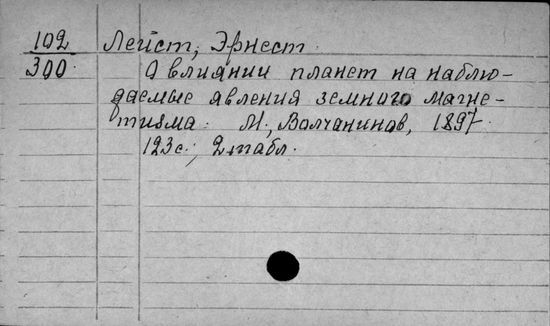 102 Лейст, Эрнест.
300. О влиянии планет на наблю-
даемые явления земного магне-
тизма. М., Волчанинов, 1897.
123 с.; 2 табл.